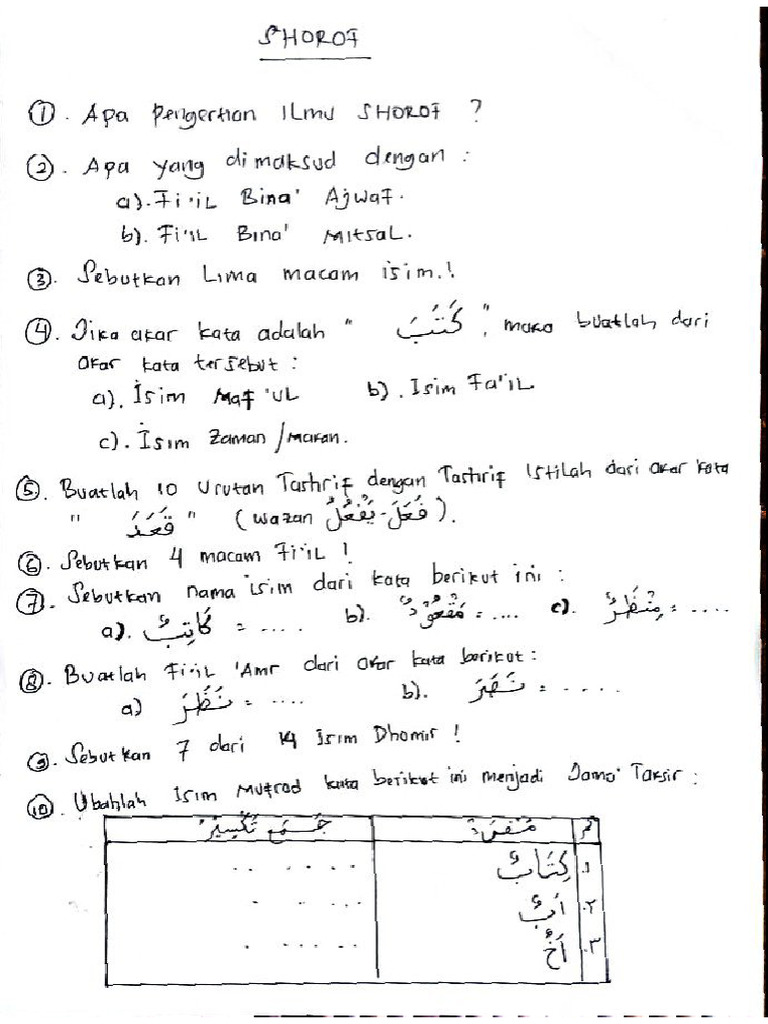 SHOROF
①. Apa Pengertian ILMU SHOROF ?
②. Apa yang dimaksud dengan :
a). Fi'iL Bina' AJwaF.
b). Fi'iL Bina' MITSAL.
③. Sebutkan Lima macam isim.!
④. Jika akar kata adalah " كَتَبَ ", maka buatlah dari
akar kata tersebut :
a). Isim MaF'UL b). Isim Fa'iL
c). Isim Zaman/makan.
⑤. Buatlah 10 Urutan Tashrif dengan Tashrif Istilah dari akar kata
" قَعَدَ " (wazan فَعَلَ - يَفْعُلُ).
⑥. Sebutkan 4 macam Fi'iL !
⑦. Sebutkan nama isim dari kata berikut ini :
a). كَاتِبٌ = .... b). مَقْعُوْدٌ = .... c). مِنْظَرٌ = ....
⑧. Buatlah Fi'iL 'Amr dari akar kata berikut :
a) نَظَرَ = .... b). نَصَرَ = .....
⑨. Sebutkan 7 dari 14 Isim Dhomir !
⑩. Ubahlah Isim Mufrad kata berikut ini menjadi Jama' Taksir :
نمر مُفْرَدٌ جَمَع تَكْسِيْرٌ
١. كِتَابٌ .. ....
٢. اَبٌ . ....
٣. أَخٌ . .....